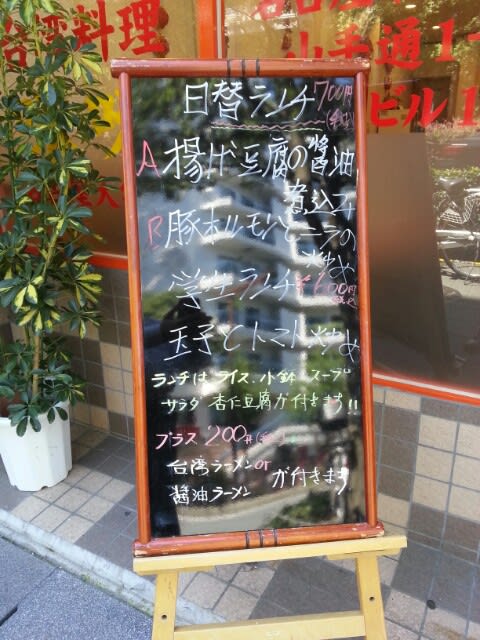 台湾料理
山手通1
ビル1
日替ランチ 700円
(税込)
A 揚げ豆腐の醤油
煮込み
B 豚ホルモンとニラの
炒め
学生ランチ ¥600円
税込
玉子とトマト炒め
ランチは ライス、小鉢、スープ
サラダ 杏仁豆腐が付きます!!
プラス 200円
台湾ラーメン or
醤油ラーメン が付きます